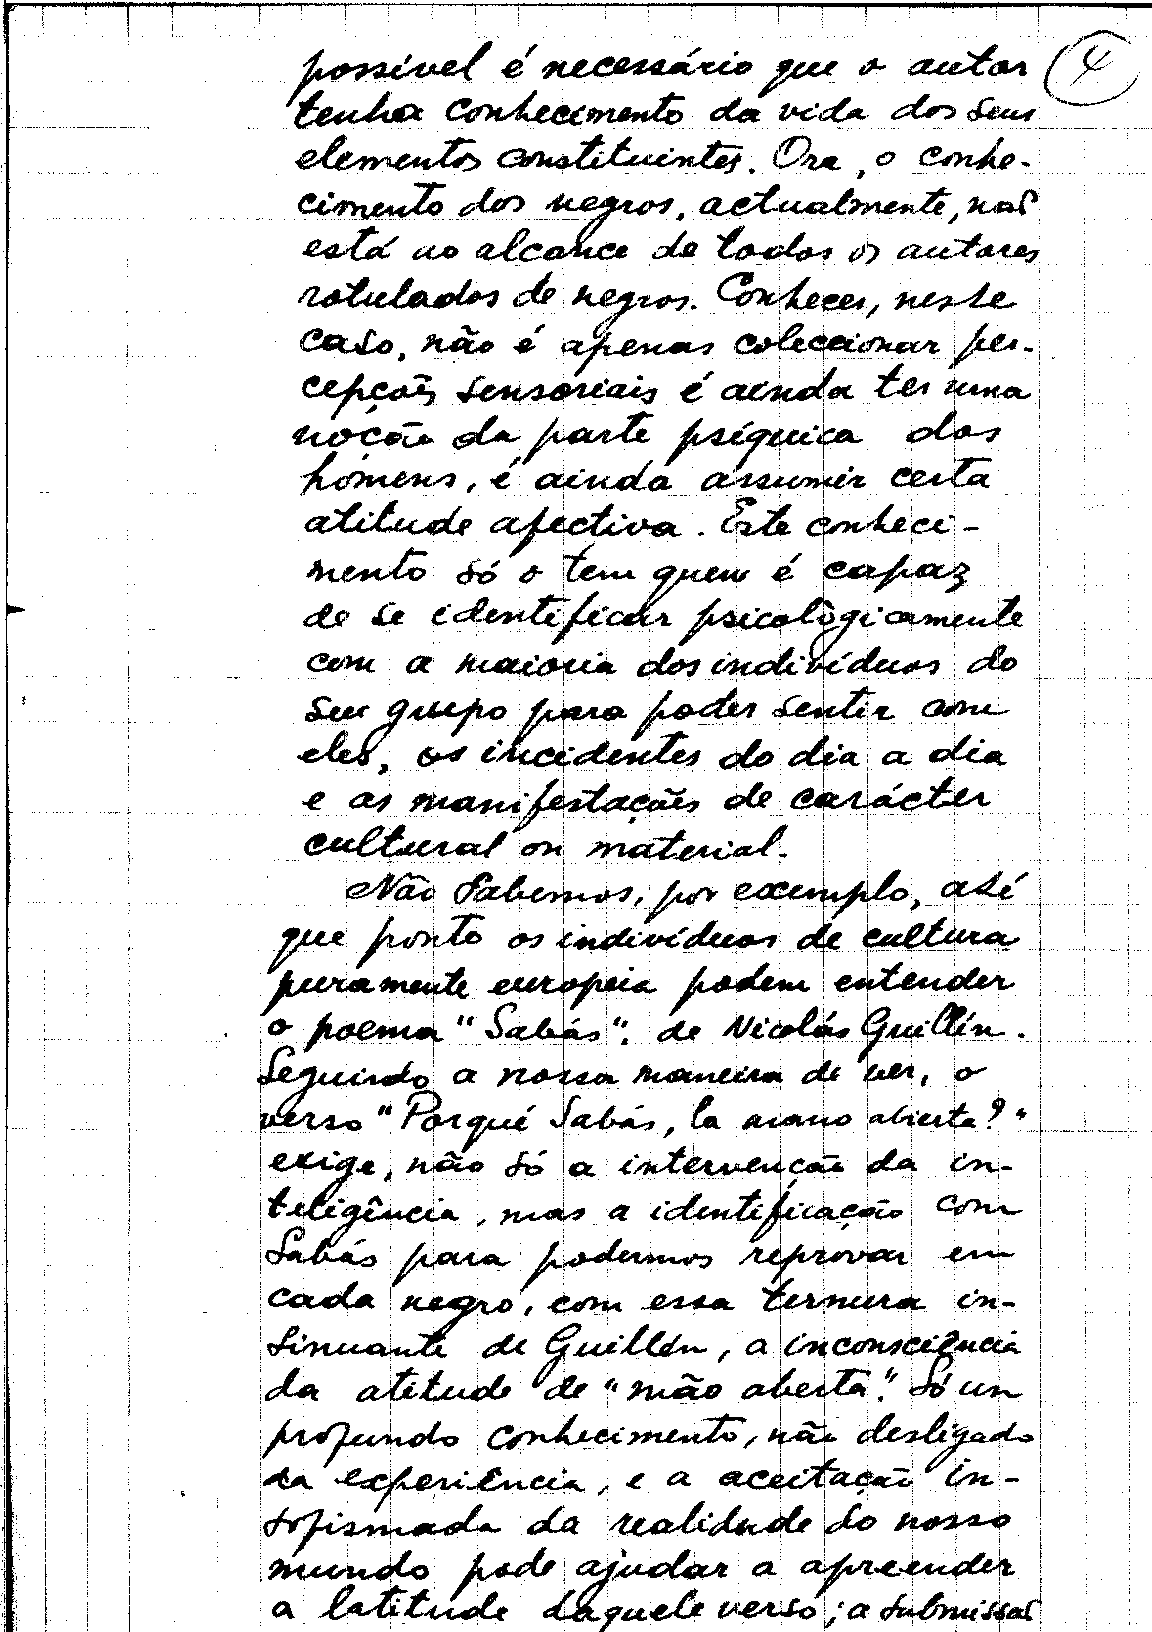 possível é necessário que o autor 4
tenha conhecimento da vida dos seus
elementos constituintes. Ora, o conhe-
cimento dos negros, actualmente, não
está ao alcance de todos os autores
rotulados de negros. Conhecer, neste
caso, não é apenas coleccionar per-
cepções sensoriais é ainda ter uma
noção da parte psíquica dos
homens, é ainda assumir certa
atitude afectiva. Este conheci-
mento só o tem quem é capaz
de se identificar psicològicamente
com a maioria dos indivíduos do
seu grupo para poder sentir com
eles, os incidentes do dia a dia
e as manifestações de carácter
cultural ou material.
Não sabemos, por exemplo, até
que ponto os indivíduos de cultura
puramente europeia podem entender
o poema "Sabás", de Nicolás Guillén.
Seguindo a nossa maneira de ver, o
verso "Porqué Sabás, la mano abierta?"
exige, não só a intervenção da in-
teligência, mas a identificação com
Sabás para podermos reprovar em
cada negro, com essa ternura in-
sinuante de Guillén, a inconsciência
da atitude de "mão aberta". Só um
profundo conhecimento, não desligado
da experiência, e a aceitação in-
sofismada da realidade do nosso
mundo pode ajudar a apreender
a latitude daquele verso; a submissão